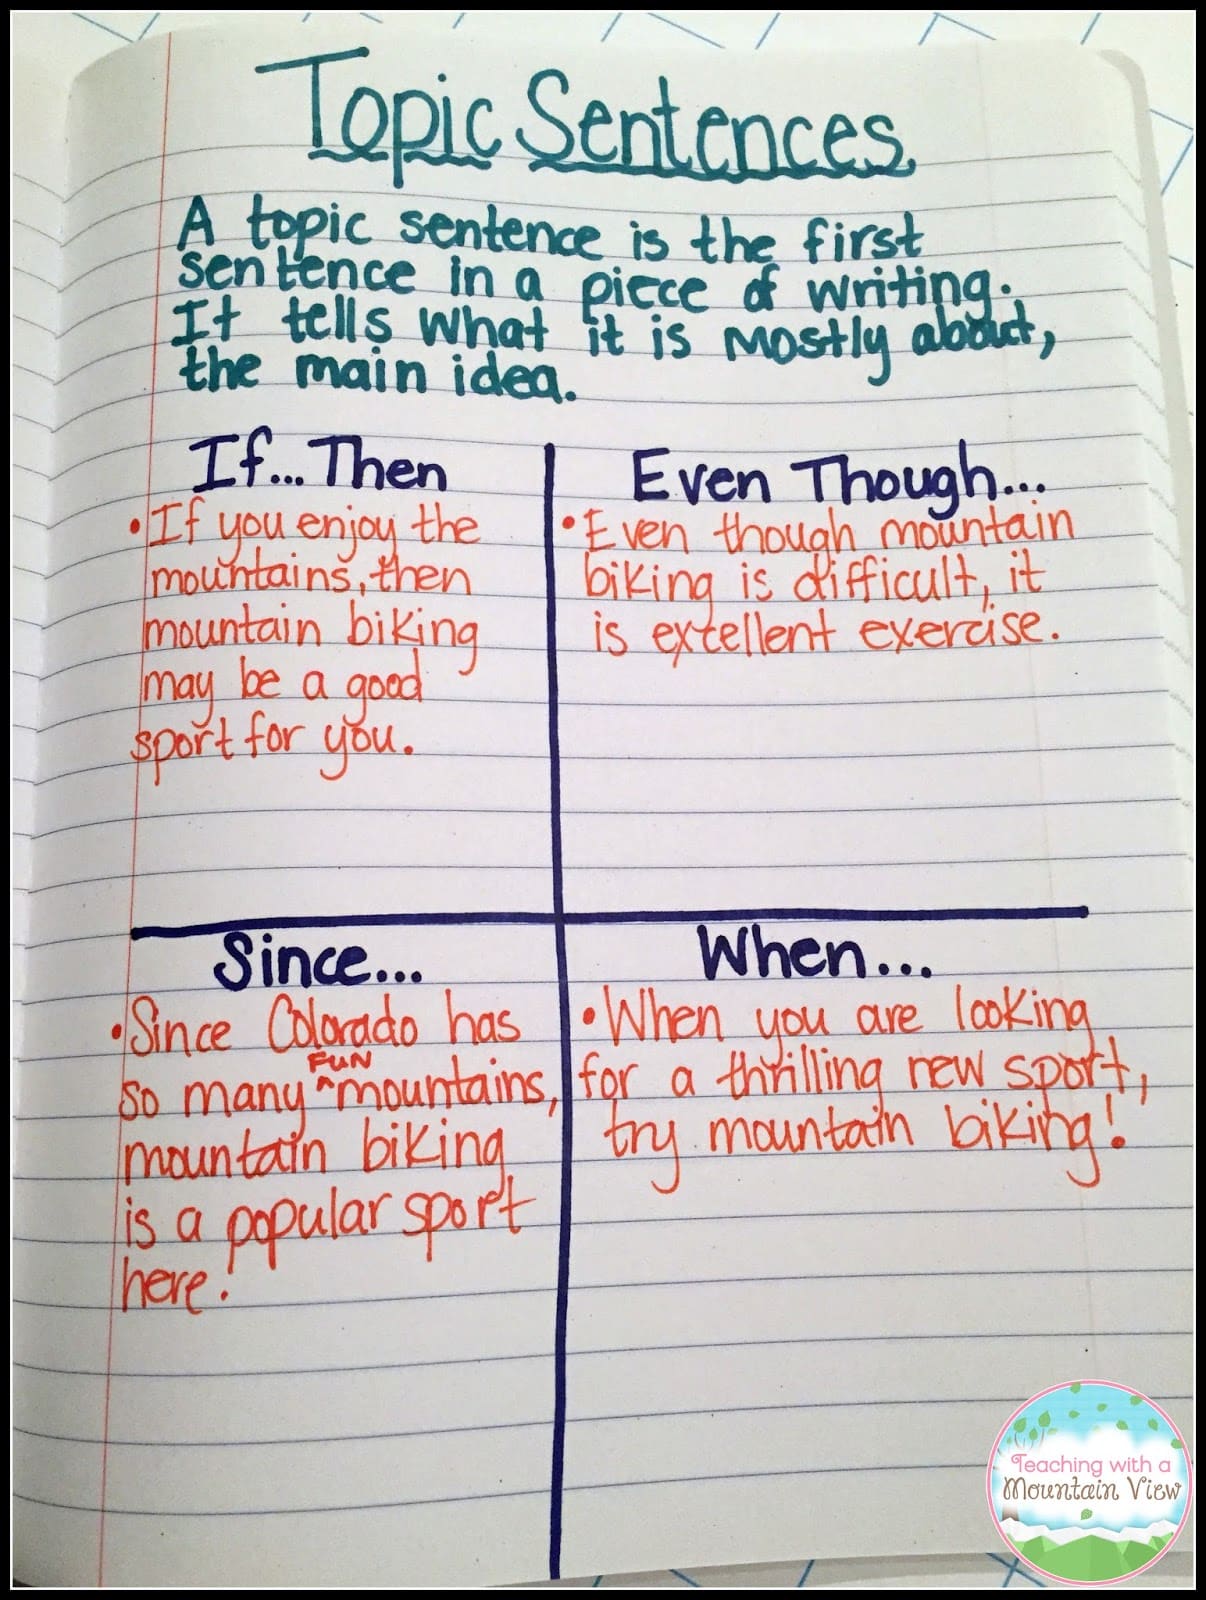 Topic Sentences
A topic sentence is the first
sentence in a piece of writing.
It tells what it is mostly about,
the main idea.
If...Then
• If you enjoy the
mountains, then
mountain biking
may be a good
sport for you.
Even Though...
• Even though mountain
biking is difficult, it
is extellent exercise.
Since...
• Since Colorado has
FUN
so many ^ mountains,
mountain biking
is a popular sport
here!
When...
• When you are looking
for a thrilling new sport,
try mountain biking!
Teaching with a
Mountain View